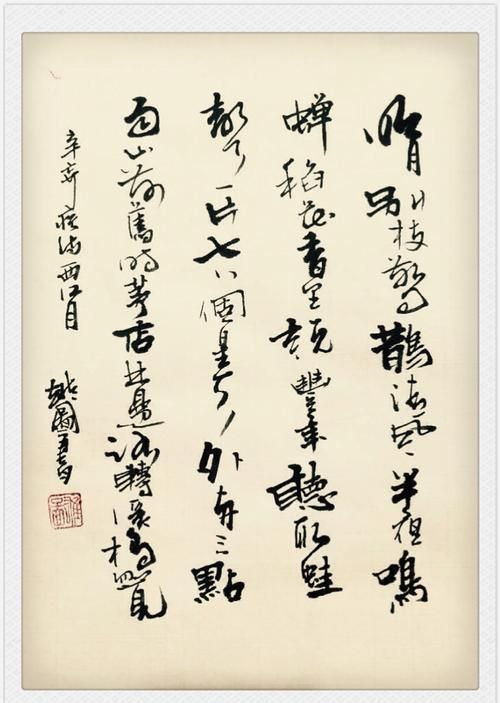 明月别枝驚鵲清風半夜鳴
蟬稻花香里説豐年聽取蛙
聲一片七八個星天外兩三點
雨山前舊時茅店社邊路轉溪橋忽見
辛弃疾詞西江月
國書